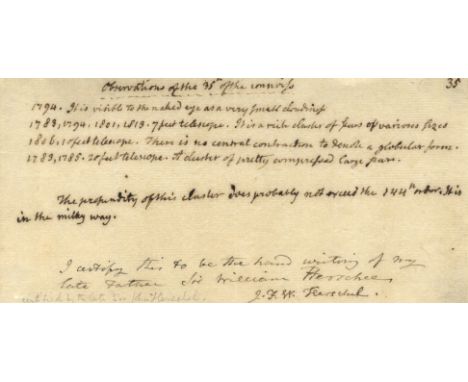 Observations of the 35th of the connoiss
35
1794. It is visible to the naked eye as a very small cloudiness
1783, 1794. 1801, 1813. 7 feet telescope. It is a rich cluster of stars of various sizes
1806. 10 feet telescope. There is no central contraction to denote a globular form.
1783, 1785. 20 feet telescope. A cluster of pretty compressed large stars.
The profundity of this cluster does probably not exceed the 144th order. It is
in the milky way.
I certify this to be the hand writing of my
late Father Sir William Herschel
J. F. W. Herschel.